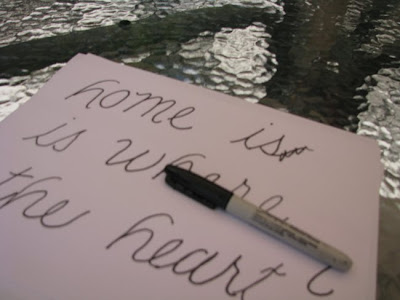 home is
is where
the heart i